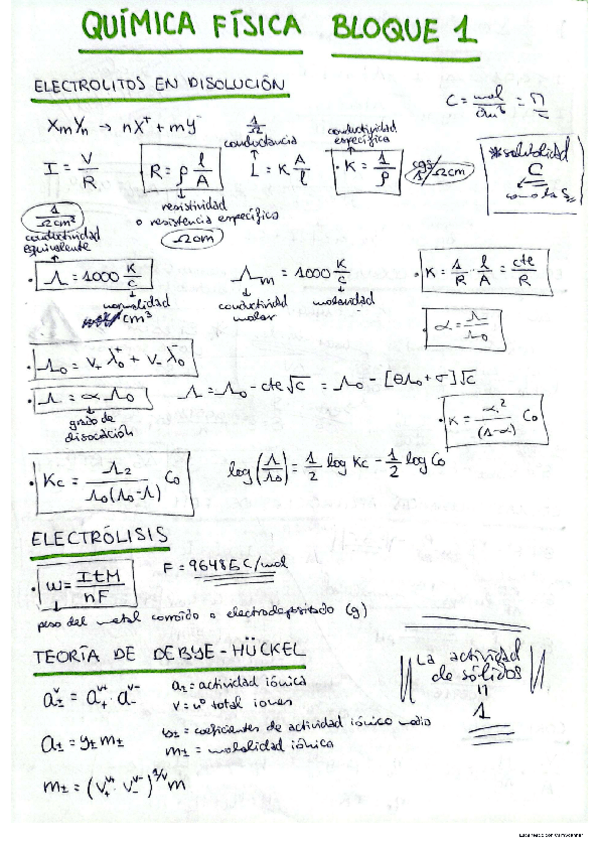 QUÍMICA FÍSICA BLOQUE 1
ELECTROLITOS EN DISOLUCIÓN
C = mol/dm³ = M
XmYn → nX⁺ + mY⁻
1/Ω
conductancia
conductividad específica
I = V/R
R = ρ l/A
L = K A/l
· K = 1/ρ
cgs 1/Ωcm
*solubilidad
C
como la S
resistividad
o resistencia específica
Ωcm
1/Ωcm²
conductividad equivalente
· Λ = 1000 K/C
normalidad
cm³
Λm = 1000 K/C
conductividad molar
molaridad
· K = 1/R · l/A = cte/R
· α = Λ/Λ0
· Λ0 = V+ λ0⁺ + V- λ0⁻
· Λ = α Λ0
grado de disociación
Λ = Λ0 - cte√C = Λ0 - [θΛ0 + σ]√C
· K = α²/(1-α) C0
· Kc = Λ2/Λ0(Λ0-Λ) C0
log(Λ/Λ0) = 1/2 log Kc - 1/2 log C0
ELECTRÓLISIS
· W = ItM/nF
F = 96485 C/mol
peso del metal corroído o electrodepositado (g)
TEORÍA DE DEBYE-HÜCKEL
La actividad de sólidos
1
a±^v = a+^v+ · a-^v-
a± = actividad iónica
v = nº total iones
a± = γ± m±
γ± = coeficientes de actividad iónico medio
m± = molalidad iónica
m± = (v+^v+ v-^v-)^1/v m